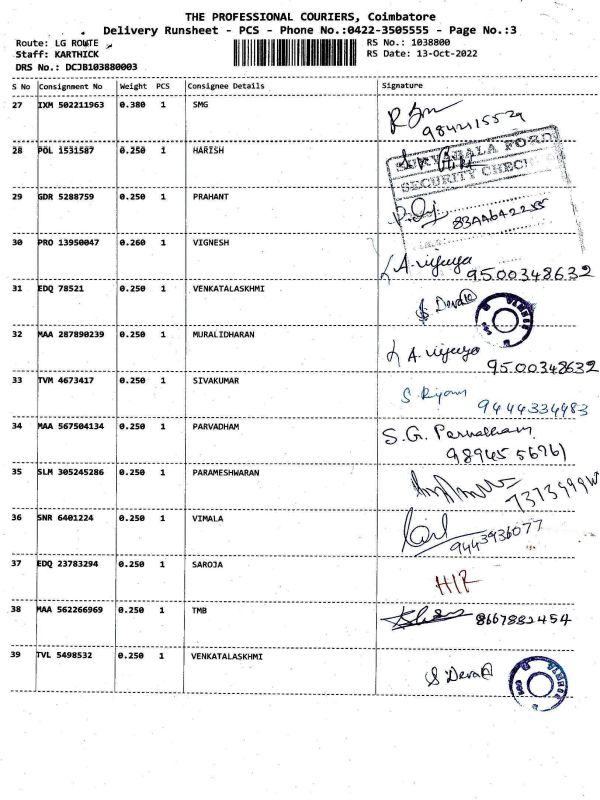 THE PROFESSIONAL COURIERS, Coimbatore
Delivery Runsheet - PCS - Phone No.:0422-3505555 - Page No.:3
Route: LG ROUTE
RS No.: 1038800
Staff: KARTHICK
RS Date: 13-Oct-2022
DRS No.: DCJB103880003
S No Consignment No Weight PCS Consignee Details Signature
27 IXM 502211963 0.380 1 SMG
9842115529
28 POL 1531587 0.250 1 HARISH
FORD
SECURITY CHECK
29 GDR 5288759 0.250 1 PRAHANT
30 PRO 13950047 0.260 1 VIGNESH A. vijaya
9500348632
31 EDQ 78521 0.250 1 VENKATALASKHMI S Devaki
32 MAA 287890239 0.250 1 MURALIDHARAN A. vijaya
9500348632
33 TVM 4673417 0.250 1 SIVAKUMAR
9444334483
34 MAA 567504134 0.250 1 PARVADHAM S.G. Parvatham
9894556761
35 SLM 305245286 0.250 1 PARAMESHWARAN
36 SNR 6401224 0.250 1 VIMALA
9443936077
37 EDQ 23783294 0.250 1 SAROJA
38 MAA 562266969 0.250 1 TMB 8667882454
39 TVL 5498532 0.250 1 VENKATALASKHMI S Devaki